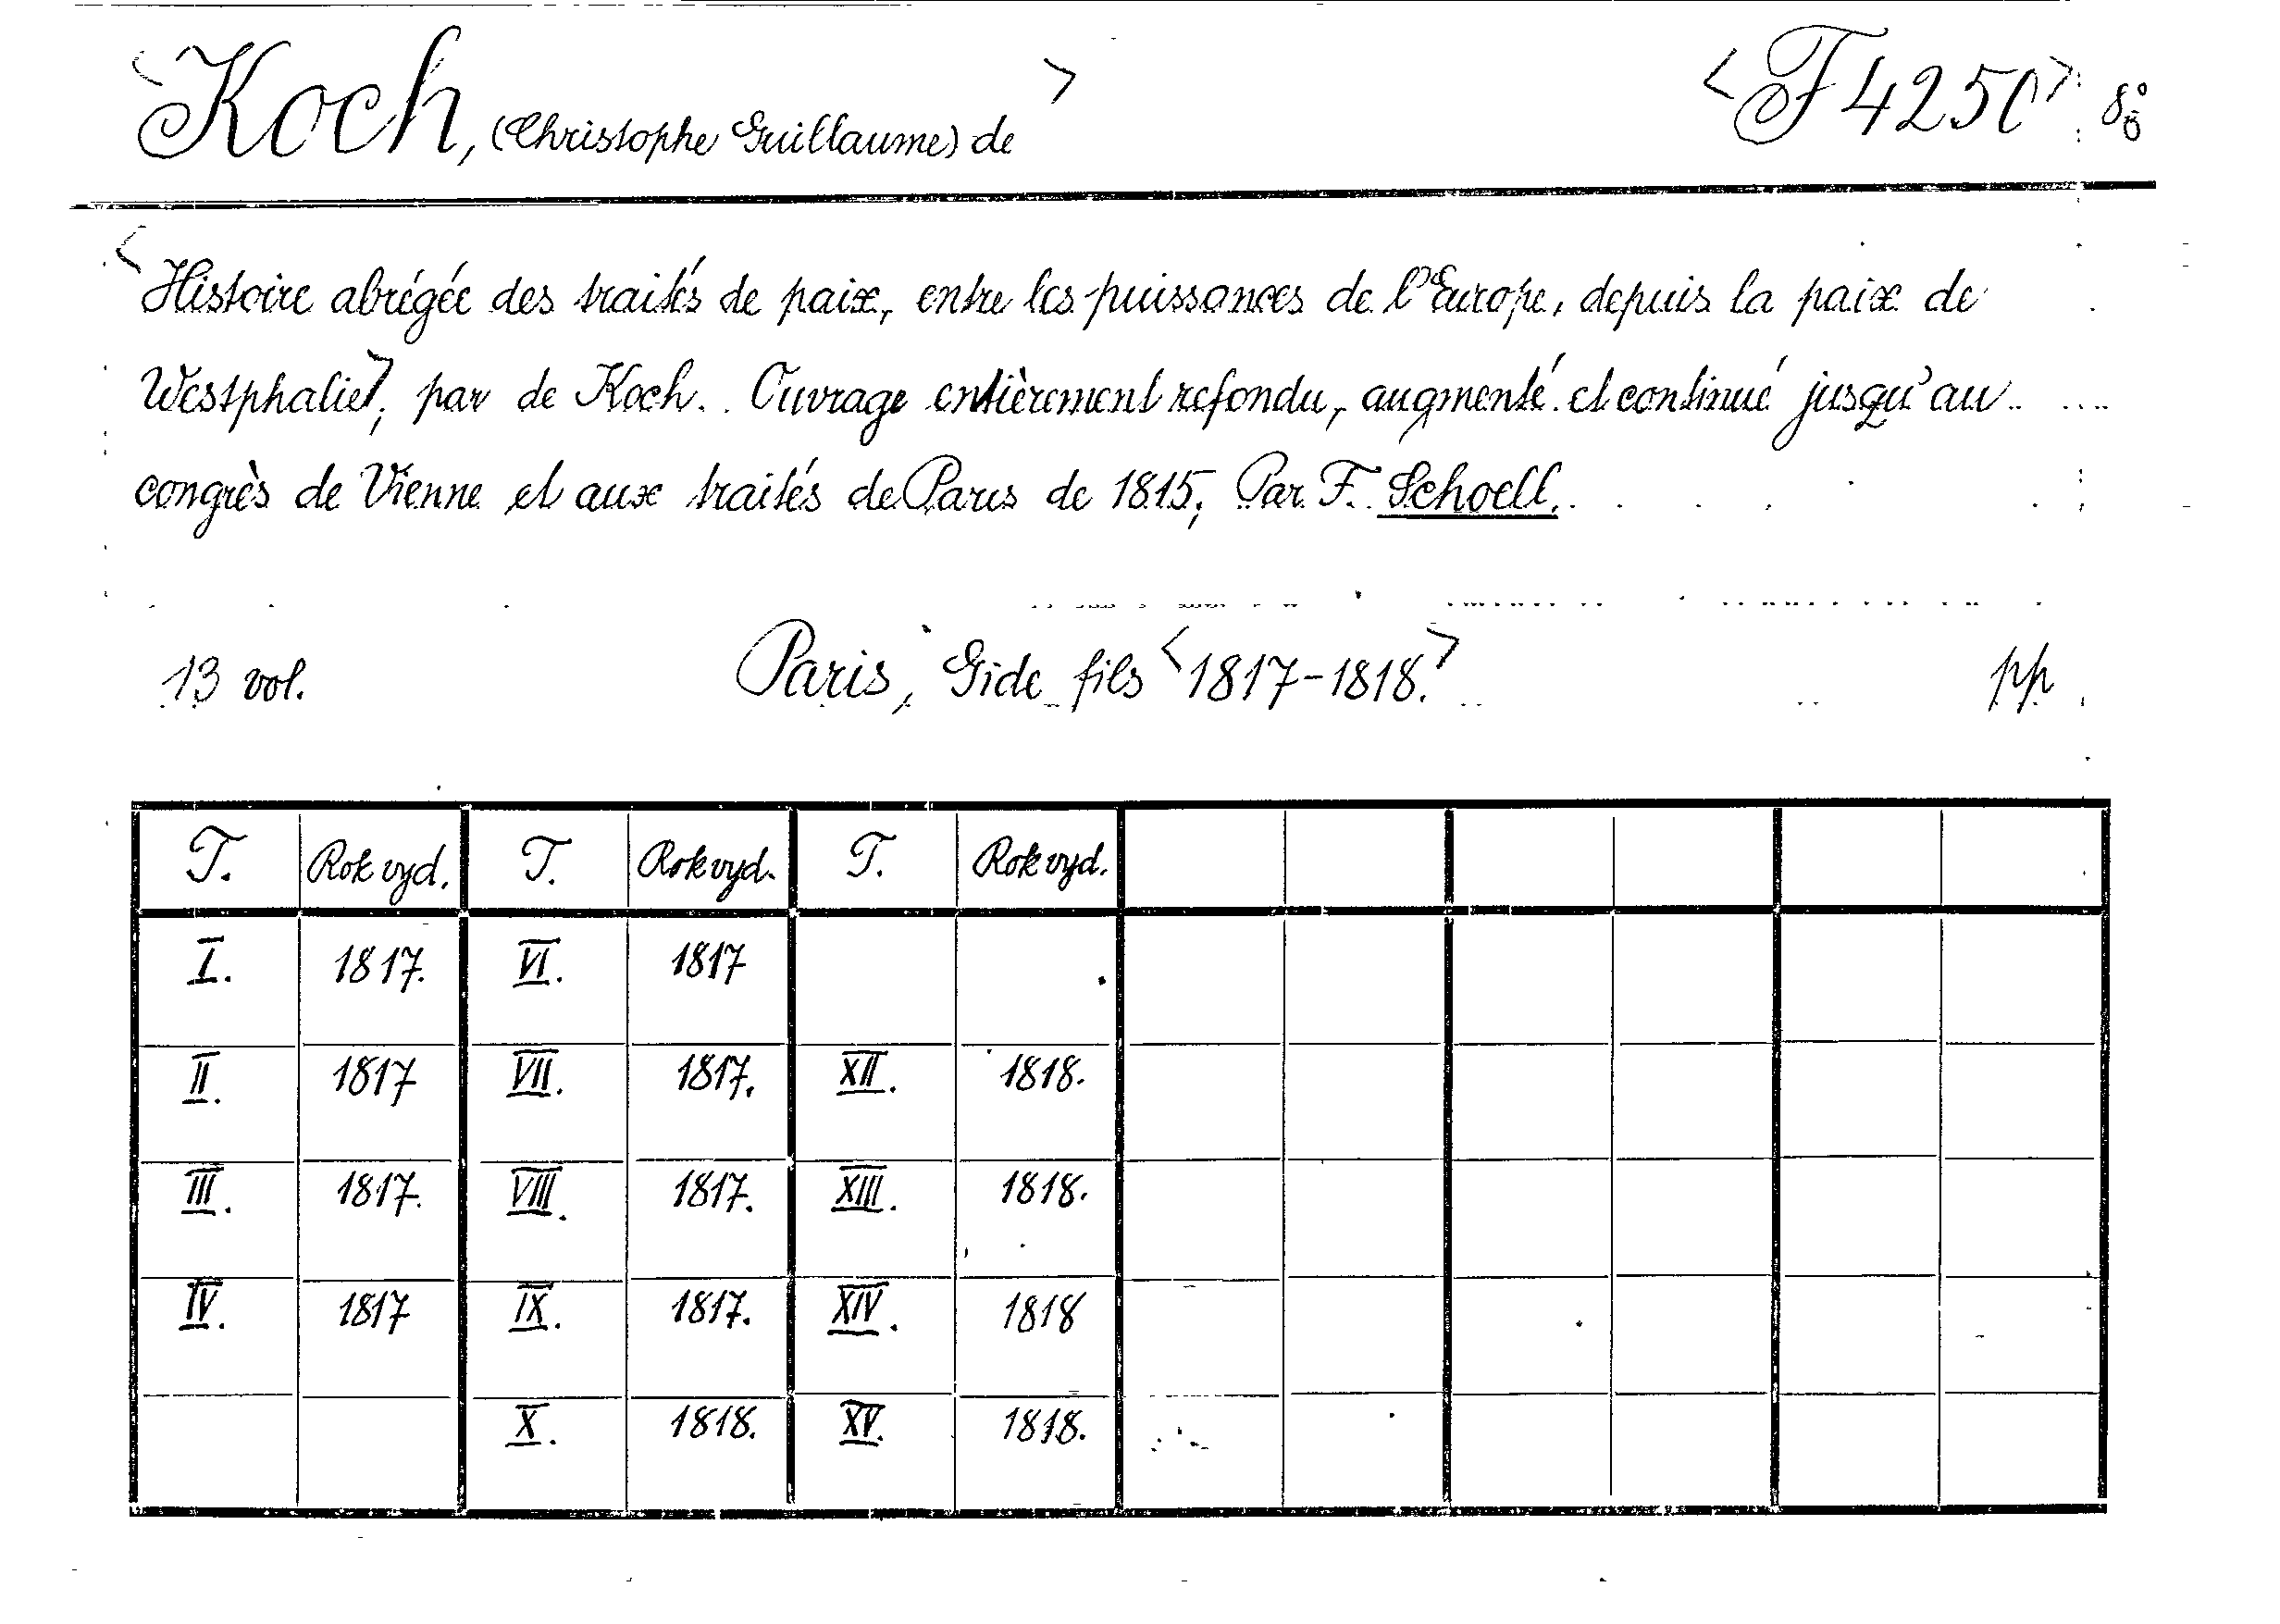 <Koch, (Christophe Guillaume) de> <F 4250> 8°
<Histoire abrégée des traités de paix, entre les puissances de l'Europe, depuis la paix de
Westphalie>, par de Koch. Ouvrage entièrement refondu, augmenté et continué jusqu'au
congrès de Vienne et aux traités de Paris de 1815; Par F. Schoell.
13 vol. Paris, Gide fils <1817-1818.> pp
T. Rok vyd. T. Rok vyd. T. Rok vyd.
I. 1817. VI. 1817
II. 1817 VII. 1817. XII. 1818.
III. 1817. VIII. 1817. XIII. 1818.
IV. 1817 IX. 1817. XIV. 1818
X. 1818. XV. 1818.